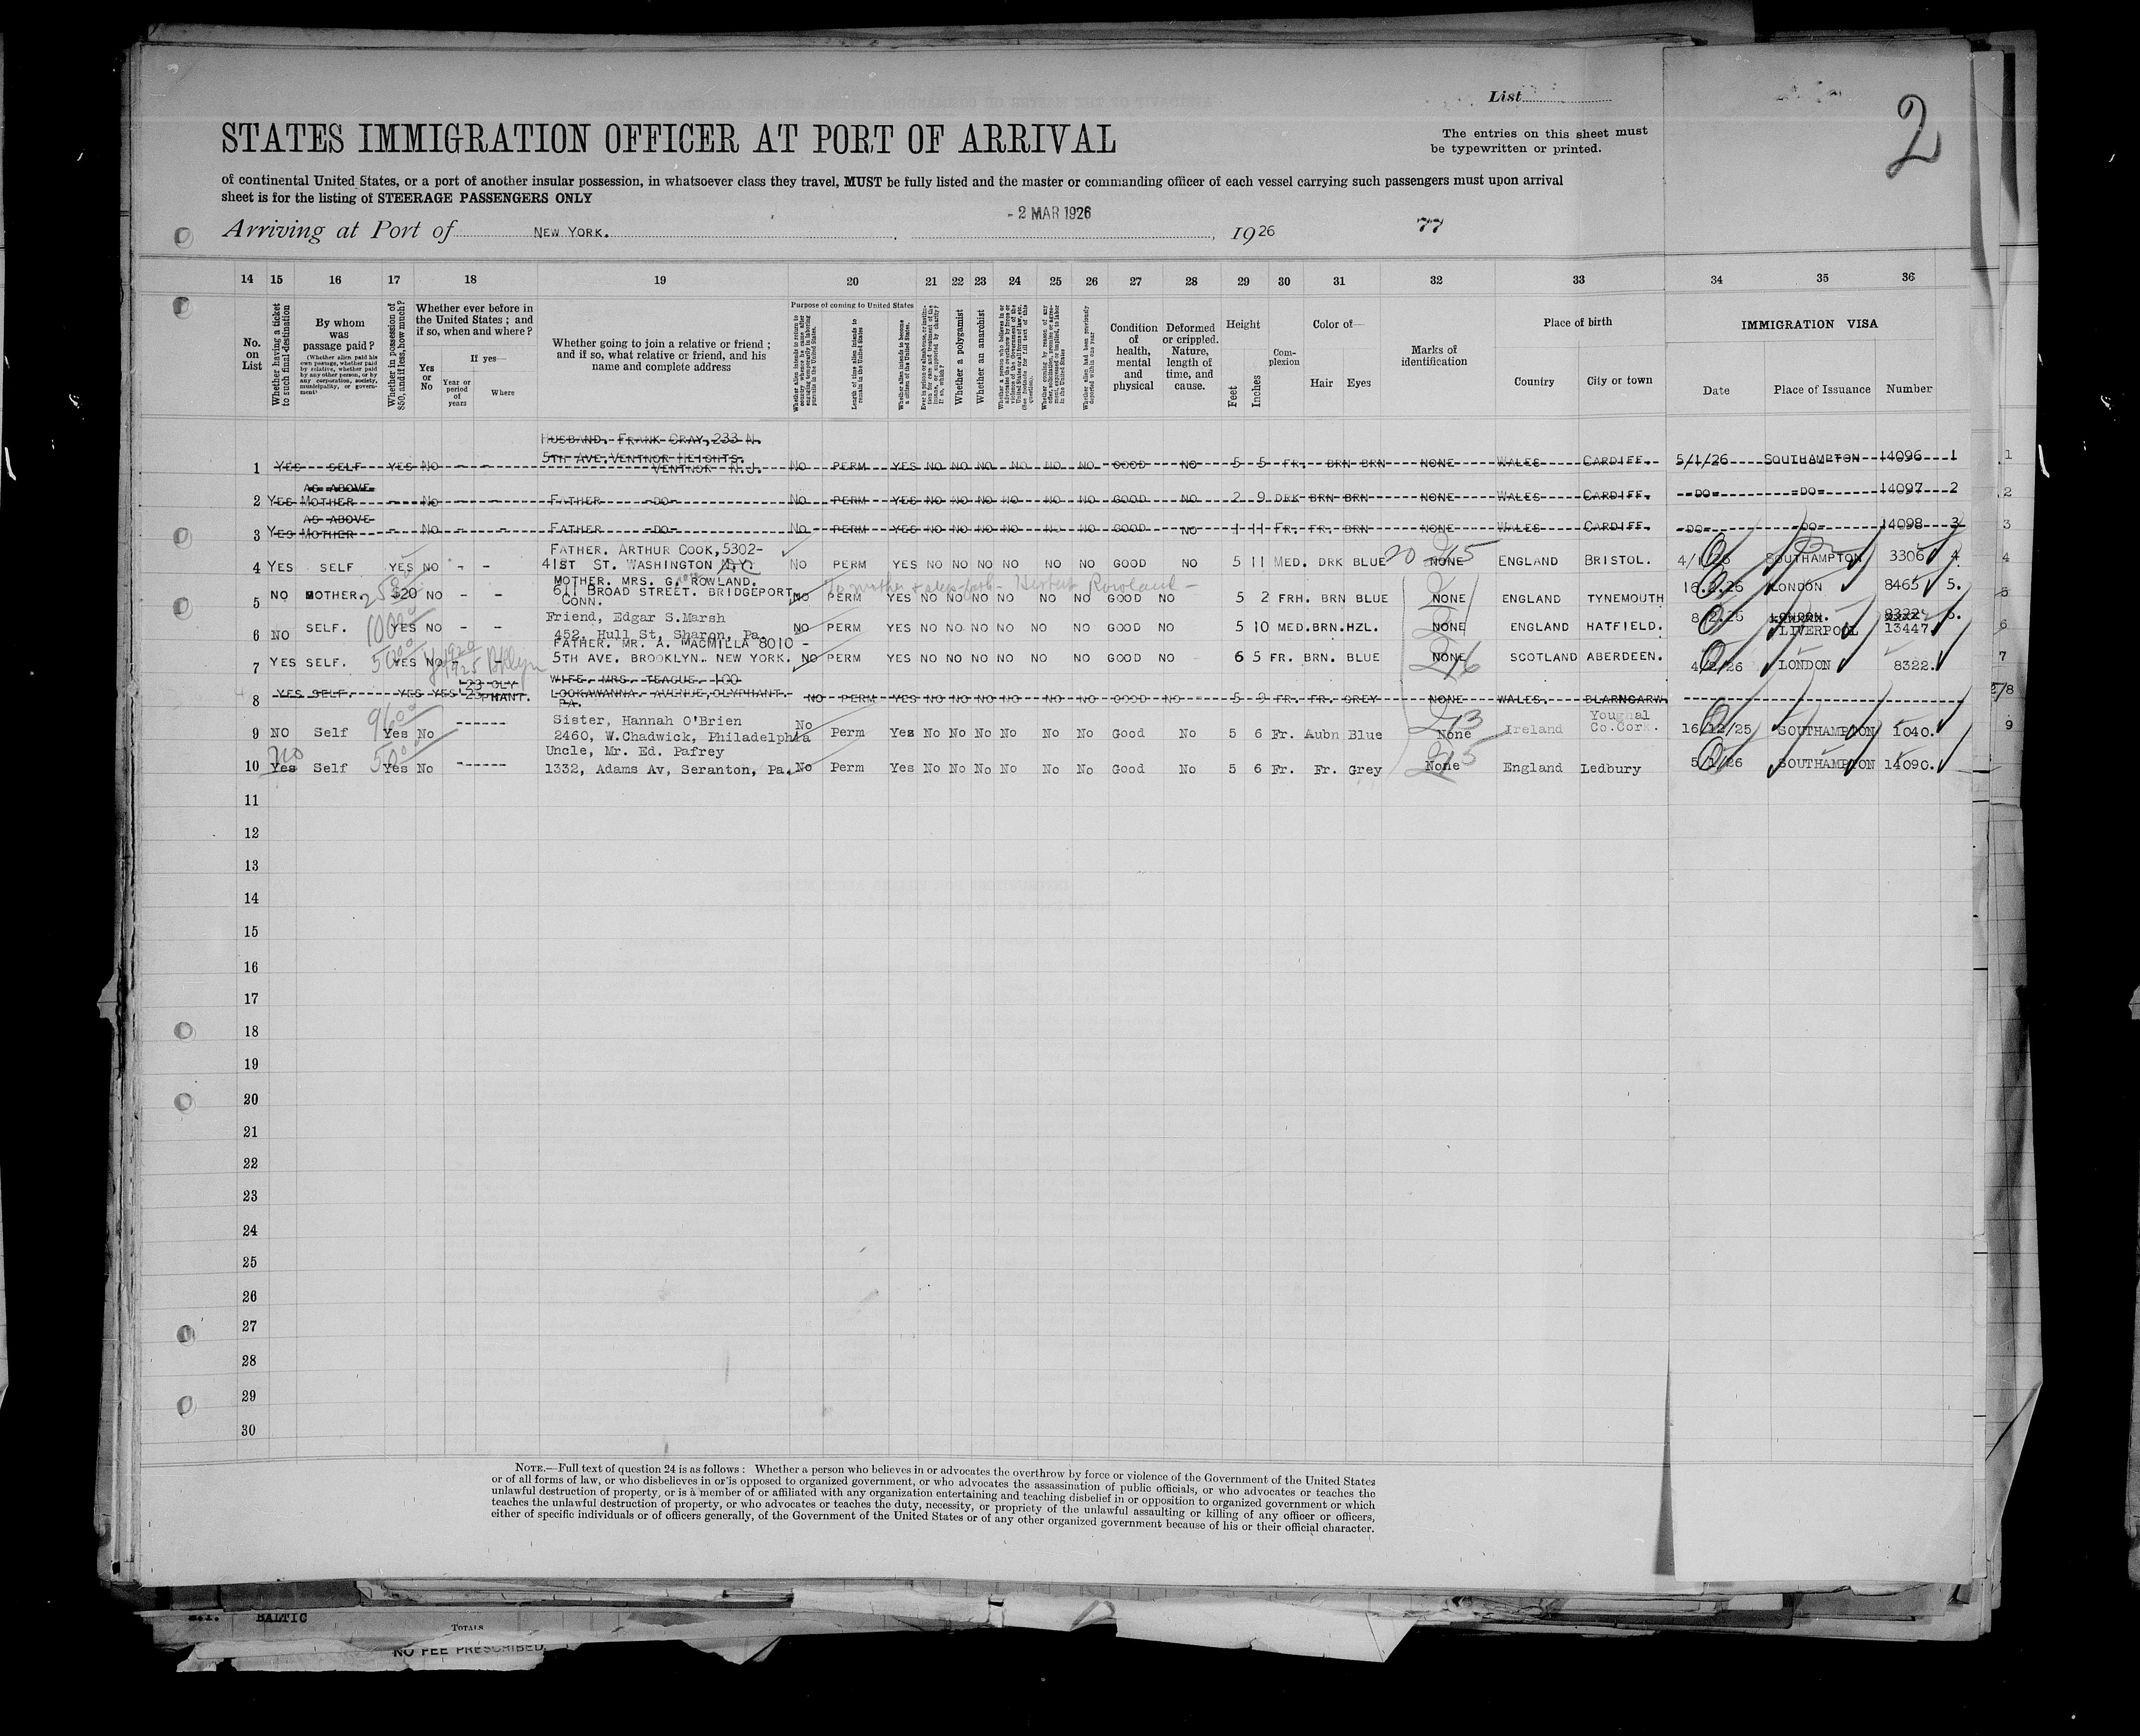 List
2
STATES IMMIGRATION OFFICER AT PORT OF ARRIVAL
The entries on this sheet must
be typewritten or printed.
of continental United States, or a port of another insular possession, in whatsoever class they travel, MUST be fully listed and the master or commanding officer of each vessel carrying such passengers must upon arrival
sheet is for the listing of STEERAGE PASSENGERS ONLY
- 2 MAR 1926
Arriving at Port of NEW YORK. , 1926 77
14 15 16 17 18 19 20 21 22 23 24 25 26 27 28 29 30 31 32 33 34 35 36
No. on List
Whether having a ticket to such final destination
By whom was passage paid?
(Whether alien paid his own passage, whether paid by relative, whether paid by any other person, or by any corporation, society, municipality, or government)
Whether in possession of $50, and if less, how much?
Whether ever before in the United States; and if so, when and where?
Yes or No
If yes—
Year or period of years
Where
Whether going to join a relative or friend; and if so, what relative or friend, and his name and complete address
Purpose of coming to United States
Length of time alien intends to remain in the United States
Whether alien intends to become a citizen of the United States.
Whether a polygamist
Whether an anarchist
Condition of health, mental and physical
Deformed or crippled. Nature, length of time, and cause.
Height
Feet
Inches
Complexion
Color of—
Hair Eyes
Marks of identification
Place of birth
Country City or town
IMMIGRATION VISA
Date Place of Issuance Number
HUSBAND. FRANK GRAY, 233 N.
5TH AVE. VENTNOR HEIGHTS.
1 YES SELF YES NO - - VENTNOR N.J. NO PERM YES NO NO NO NO NO NO GOOD NO 5 5 FR. BRN BRN NONE WALES CARDIFF. 5/1/26 SOUTHAMPTON 14096 1
AS ABOVE
2 YES MOTHER - NO - - FATHER -DO- NO PERM YES NO NO NO NO NO NO GOOD NO 2 9 DRK BRN BRN NONE WALES CARDIFF. -DO- -DO- 14097 2
AS ABOVE
3 YES MOTHER - NO - - FATHER -DO- NO PERM YES NO NO NO NO NO NO GOOD NO 1 11 FR. FR. BRN NONE WALES CARDIFF. -DO- -DO- 14098 3
FATHER. ARTHUR COOK, 5302-
4 YES SELF YES NO - - 41ST ST. WASHINGTON DC NO PERM YES NO NO NO NO NO NO GOOD NO 5 11 MED. DRK BLUE NONE ENGLAND BRISTOL. 4/1/26 SOUTHAMPTON 3306 4
MOTHER. MRS. G. ROWLAND.
To mother & step-fath- Herbert Rowland-
5 NO MOTHER. $20 NO - - 611 BROAD STREET. BRIDGEPORT NO PERM YES NO NO NO NO NO NO GOOD NO 5 2 FRH. BRN BLUE NONE ENGLAND TYNEMOUTH 16.2.26 LONDON 8465 5.
CONN.
Friend, Edgar S.Marsh
6 NO SELF. YES NO - - 452, Hull St, Sharon, Pa. NO PERM YES NO NO NO NO NO NO GOOD NO 5 10 MED.BRN.HZL. NONE ENGLAND HATFIELD. LONDON. 8322 6.
LIVERPOOL 13447
FATHER. MR. A. MACMILLA 8010 -
7 YES SELF. YES NO 5TH AVE. BROOKLYN. NEW YORK. NO PERM YES NO NO NO NO NO NO GOOD NO 6 5 FR. BRN. BLUE NONE SCOTLAND ABERDEEN. 4/2/26 LONDON 8322.
WIFE. MRS. TEAGUE. 100
8 YES SELF. YES YES '23 OLYPHANT. LOOKAWANNA. AVENUE, OLYPHANT. NO PERM YES NO NO NO NO NO NO GOOD NO 5 9 FR. FR. GREY NONE WALES. BLARNGARW
PA.
Sister, Hannah O'Brien
9 NO Self Yes No ------ 2460, W.Chadwick, Philadelphia No Perm Yes No No No No No No Good No 5 6 Fr. Aubn Blue None Ireland Youghal Co.Cork. 16/12/25 SOUTHAMPTON 1040.
Uncle, Mr. Ed. Pafrey
10 Yes no Self Yes No ------ 1332, Adams Av, Seranton, Pa. No Perm Yes No No No No No No Good No 5 6 Fr. Fr. Grey None England Ledbury 5/1/26 SOUTHAMPTON 14090.
11
12
13
14
15
16
17
18
19
20
21
22
23
24
25
26
27
28
29
30
NOTE.—Full text of question 24 is as follows: Whether a person who believes in or advocates the overthrow by force or violence of the Government of the United States
or of all forms of law, or who disbelieves in or is opposed to organized government, or who advocates the assassination of public officials, or who advocates or teaches the
unlawful destruction of property, or is a member of or affiliated with any organization entertaining and teaching disbelief in or opposition to organized government or which
teaches the unlawful destruction of property, or who advocates or teaches the duty, necessity, or propriety of the unlawful assaulting or killing of any officer or officers,
either of specific individuals or of officers generally, of the Government of the United States or of any other organized government because of his or their official character.
BALTIC
TOTALS
NO FEE PRESCRIBED.